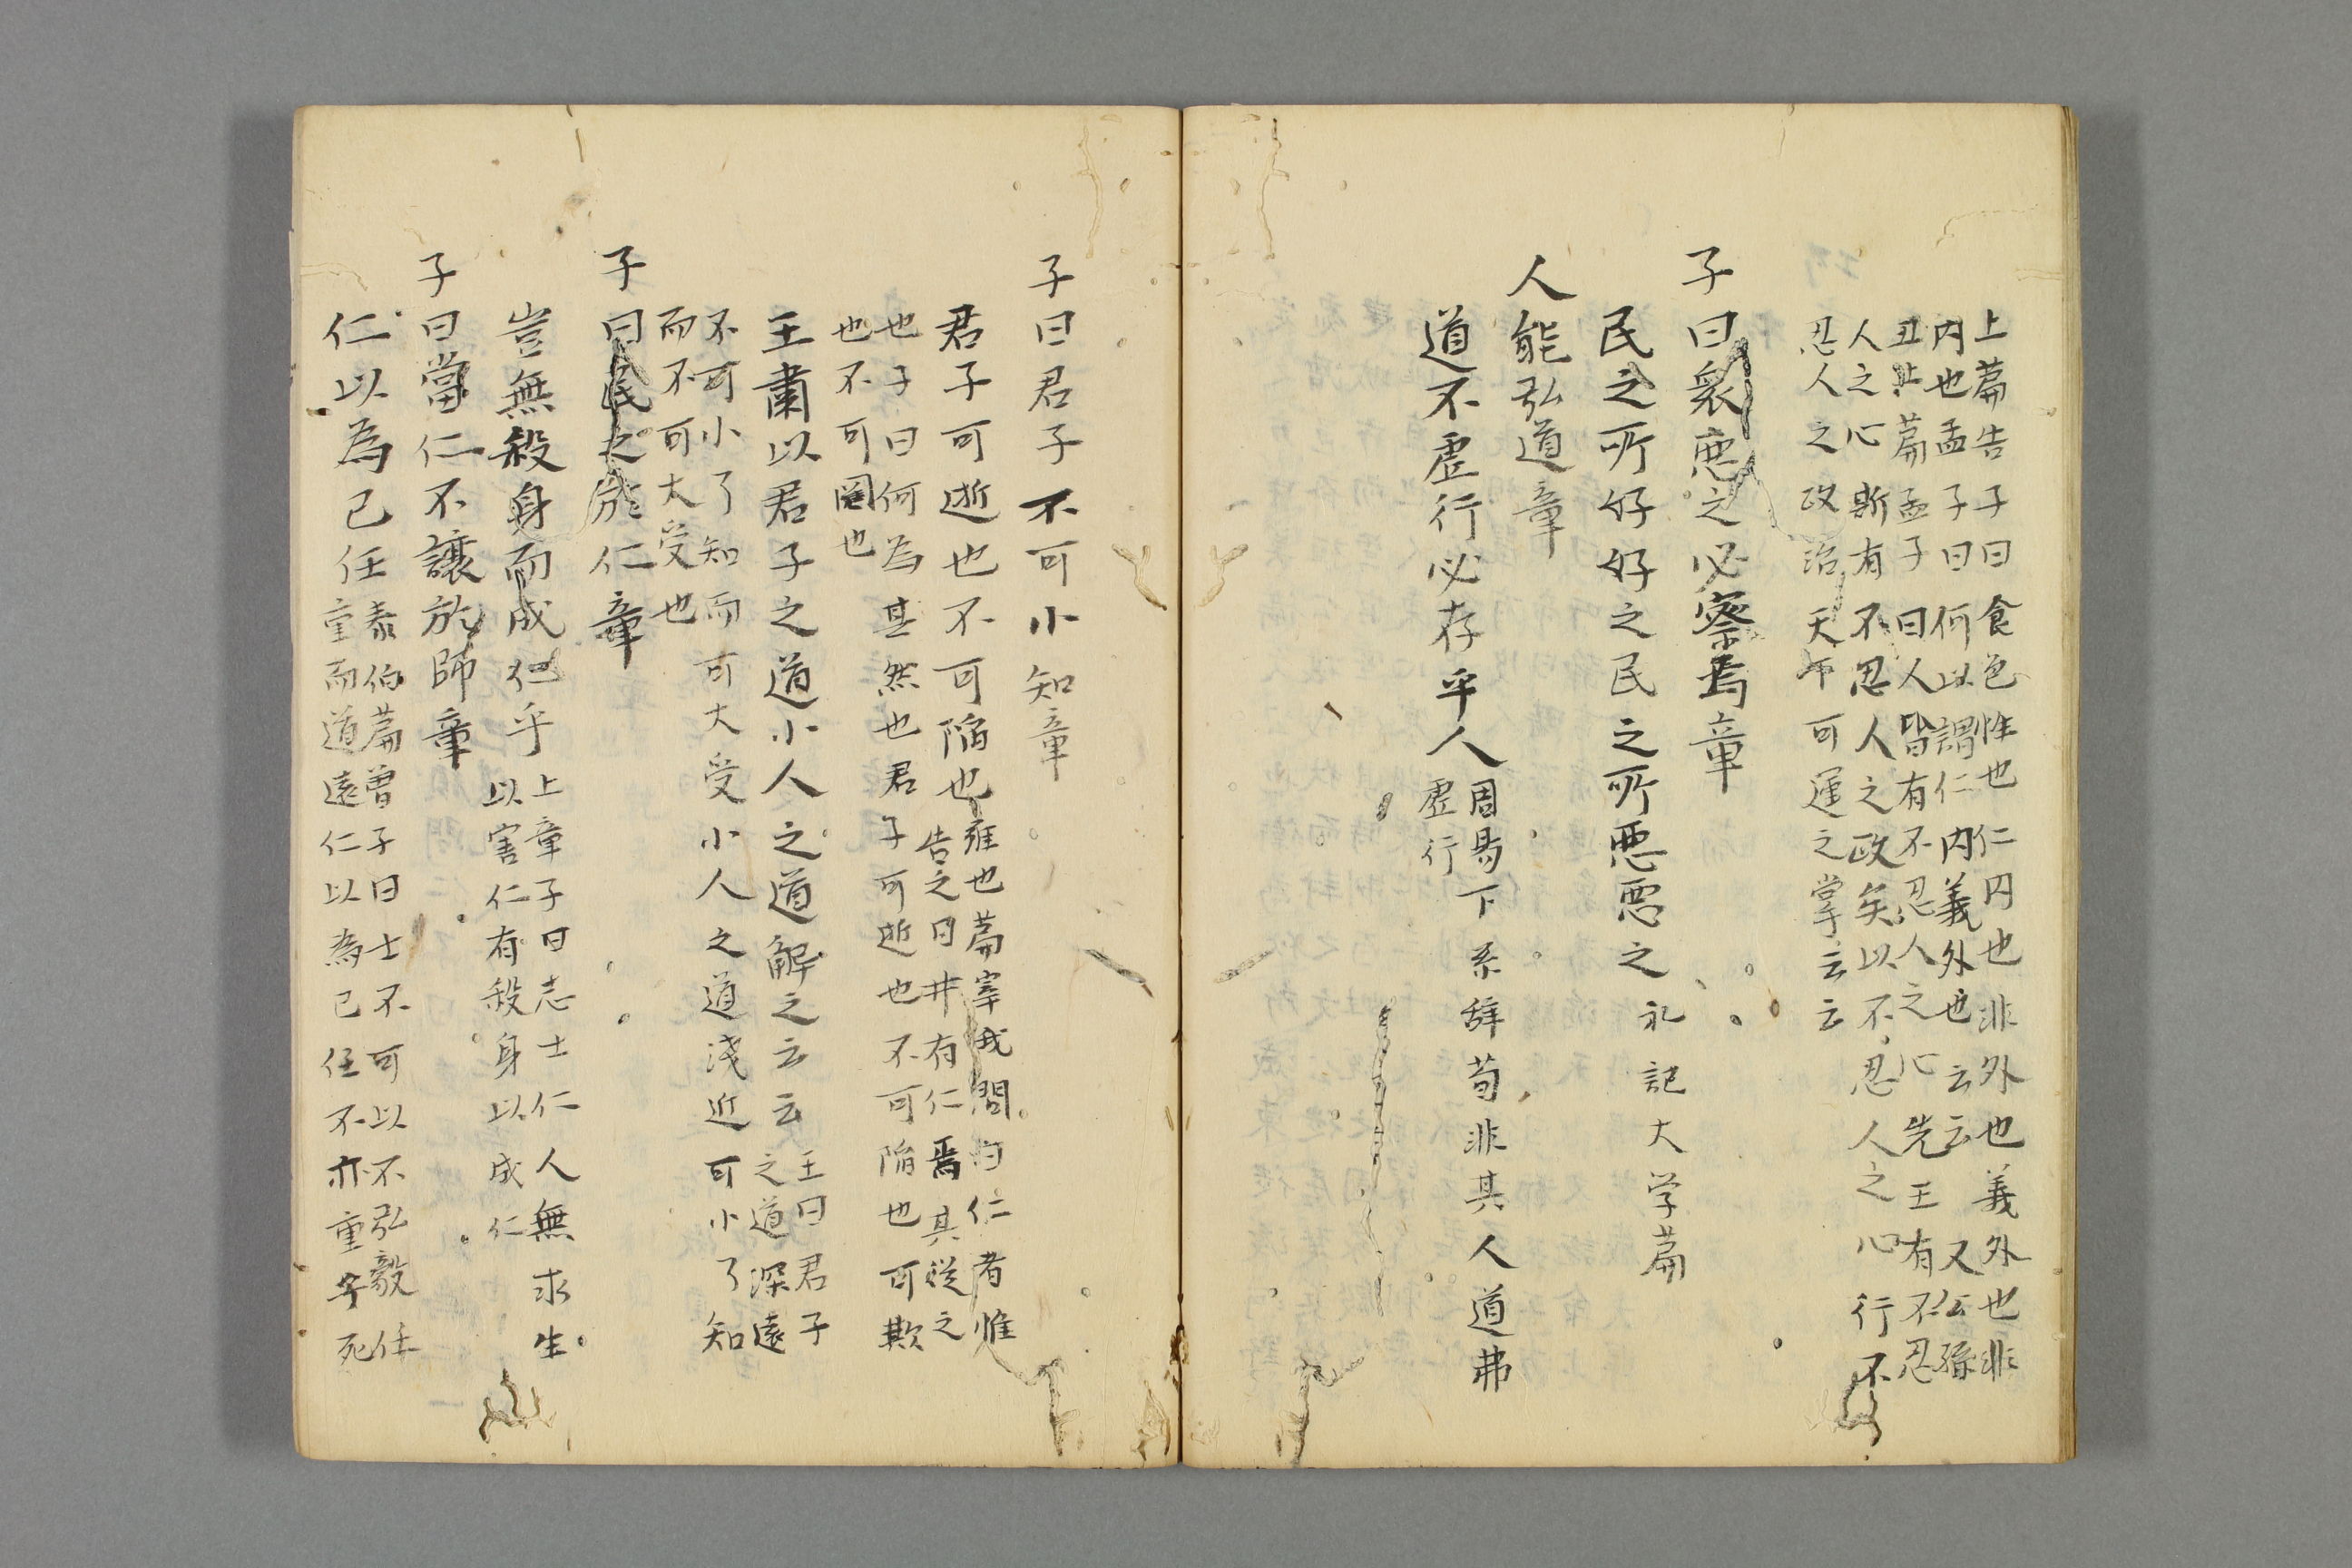 上篇告子曰食色性也仁内也非外也義外也非
内也孟子曰何以謂仁内義外也云云又公孫
丑上篇孟子曰人皆有不忍人之心先王有不忍
人之心斯有不忍人之政矣以不忍人之心行不
忍人之政治天下可運之掌云云
子曰衆惡之必察焉章
民之所好好之民之所悪悪之礼記大学篇
人能弘道章
道不虚行必存乎人周易下系辞苟非其人道弗
虚行
子曰君子不可小知章
君子可逝也不可陥也雍也篇宰我問曰仁者惟
告之曰井有仁焉其従之
也子曰何為其然也君子可逝也不可陥也可欺
也不可罔也
王肅以君子之道小人之道解之云云王曰君子
之道深遠
不可小了知而可大受小人之道浅近可小了知
而不可大受也
子曰民之於仁章
豈無殺身而成仁乎上章子曰志士仁人無求生
以害仁有殺身以成仁
子曰當仁不讓於師章
仁以為己任泰伯篇曽子曰士不可以不弘毅任
重而道遠仁以為己任不亦重乎死